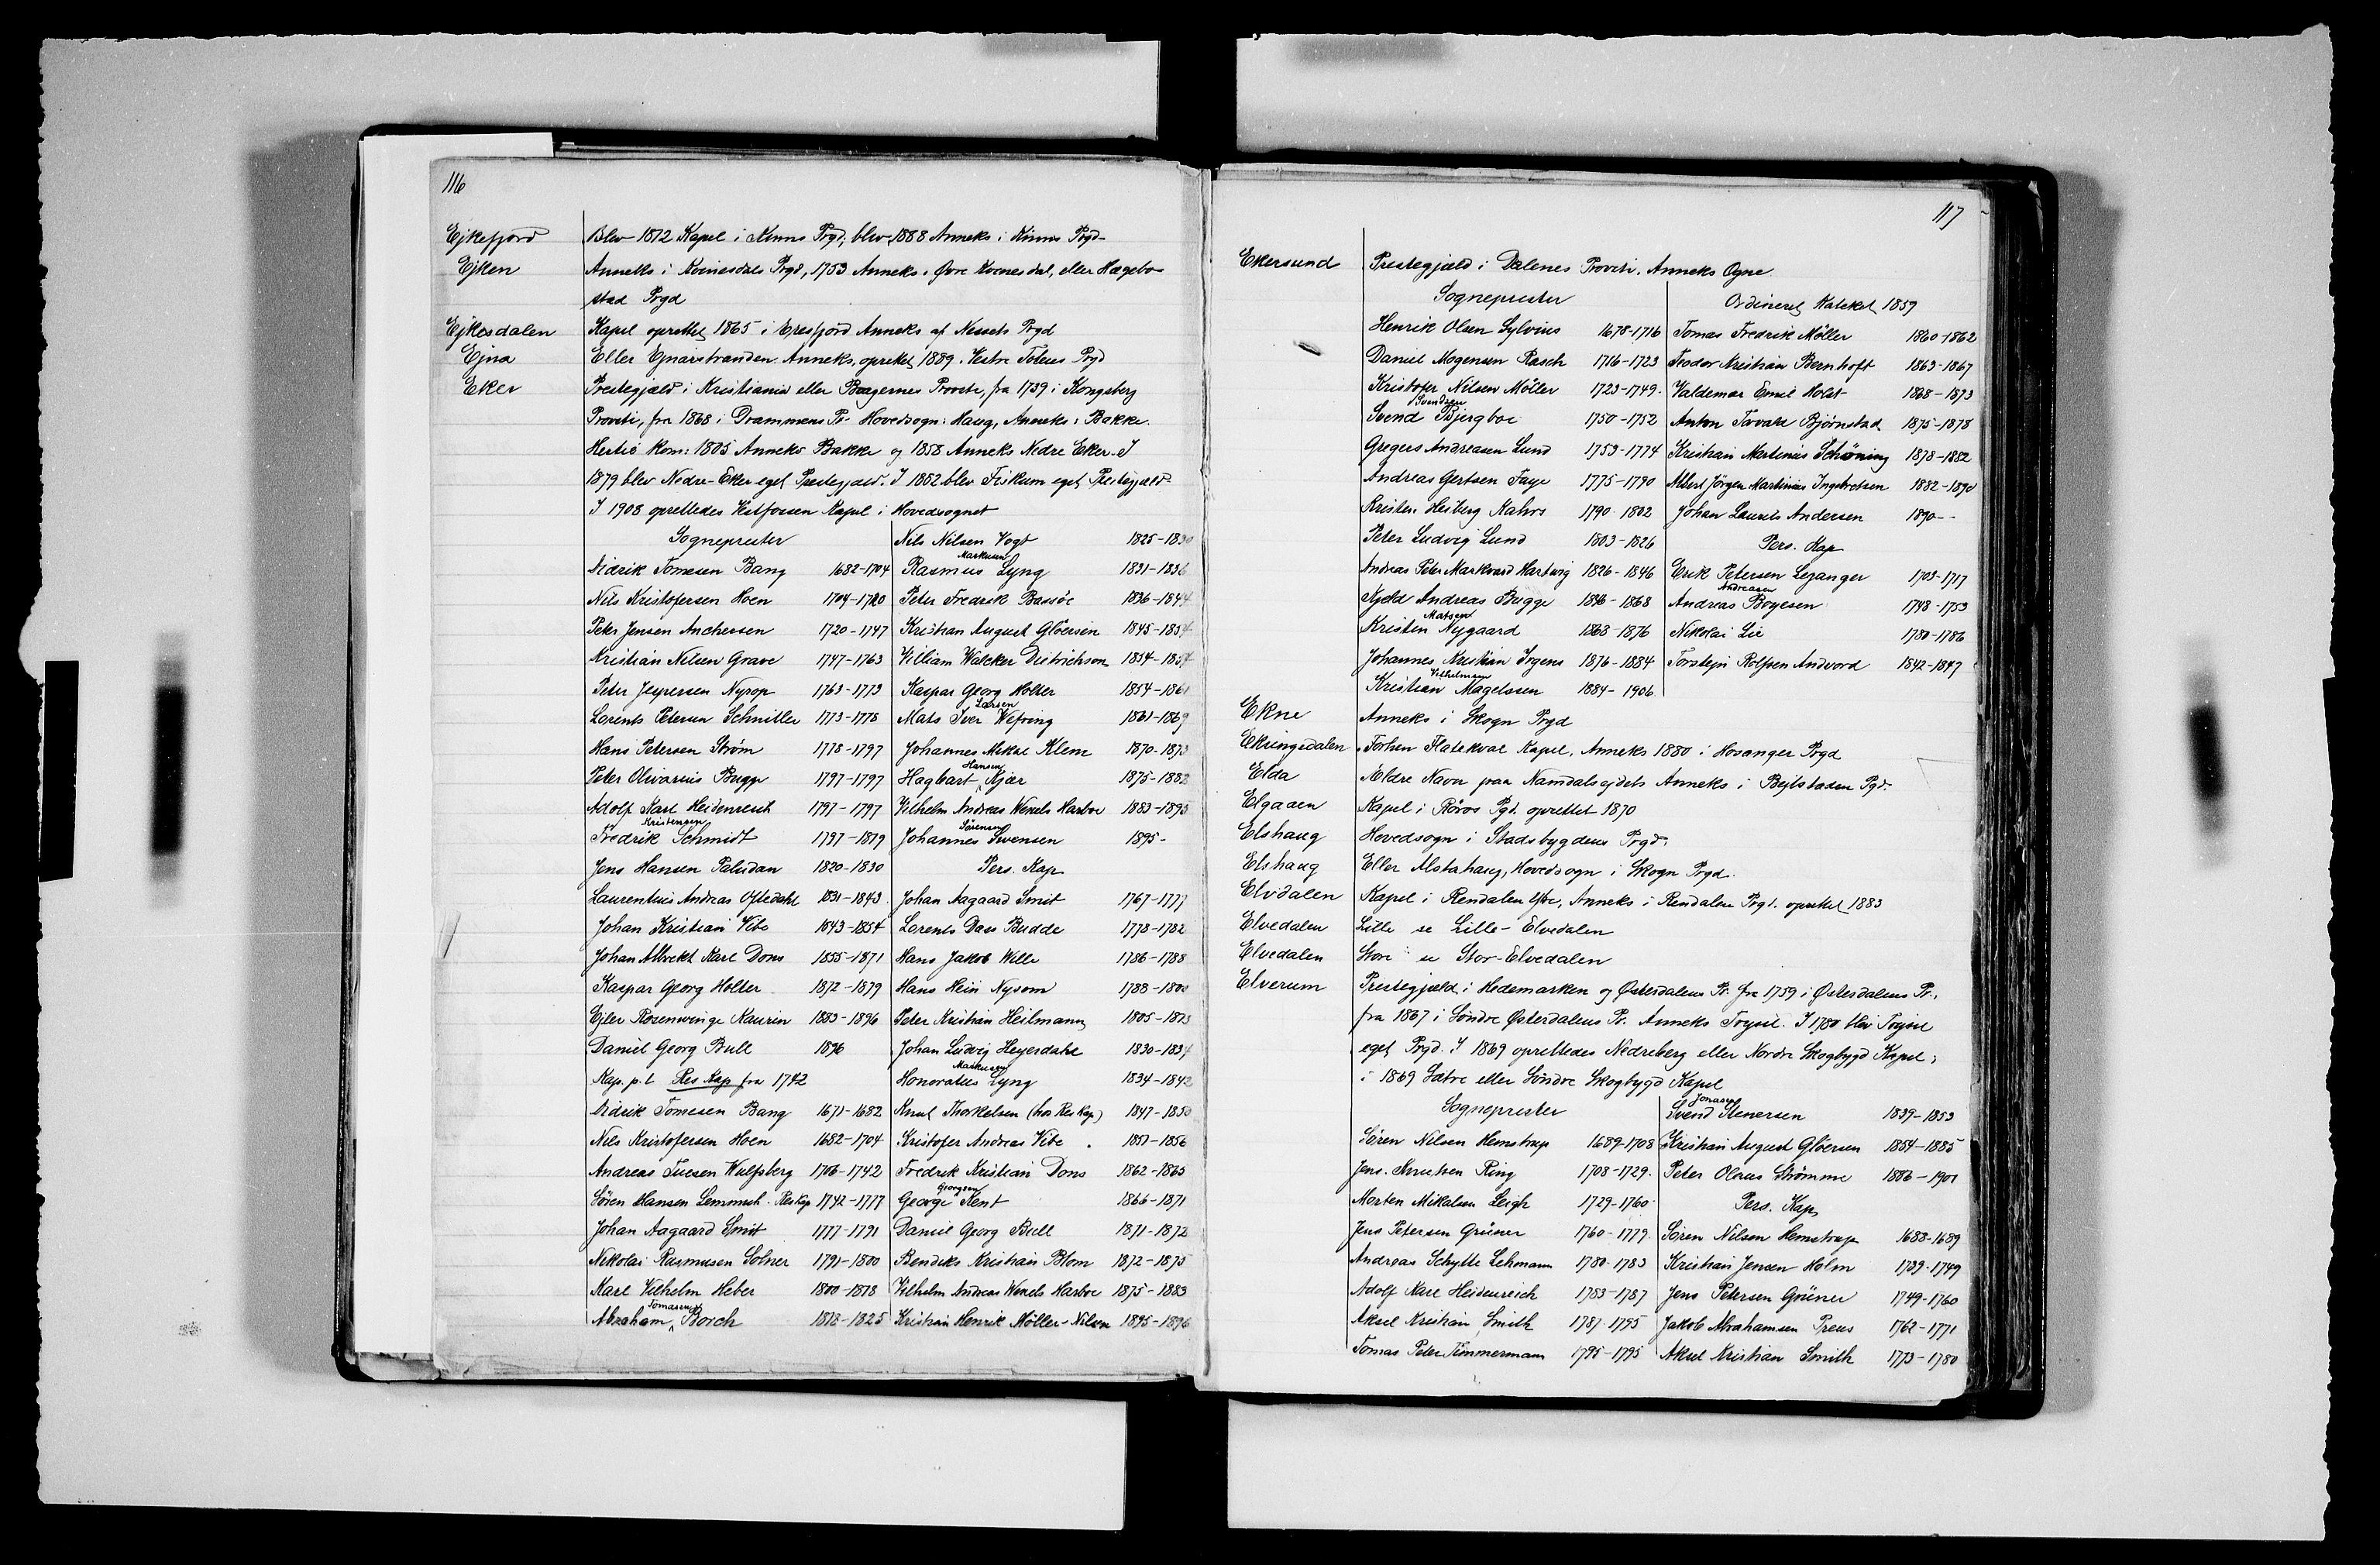 116
Ejkefjord Blev 1812 Kapel i Kinns Prgd; blev 1888 Anneks i Kinns Prgd
Ejken Anneks i Kvinesdals Prgd, 1753 Anneks i Øvre Kvinesdal, eller Hægebo-
stad Prgd
Ejkesdalen Kapel oprettet 1865 i Eresfjord Anneks af Nessets Prgd
Ejna Eller Ejnarstranden Anneks, oprettet 1889 i Vestre Totens Prgd
Eker Prestegjæld i Kristiania eller Bragernes Provsti, fra 1739 i Kongsberg
Provsti, fra 1868 i Drammens Pr. Hovedsogn: Haug, Anneks: Bakke.
Hertil kom: 1805 Anneks Bakke og 1858 Anneks Nedre Eker. I
1879 blev Nedre-Eker eget Prestegjæld. I 1852 blev Fiskum eget Prestegjæld
I 1908 oprettedes Vestfossen Kapel i Hovedsognet
Sogneprester
Didrik Tomesen Bang 1682-1704
Nils Kristofersen Hoen 1704-1720
Peter Jensen Anchersen 1720-1747
Kristian Nilsen Grave 1747-1763
Peter Jespersen Nysop 1763-1773
Lorents Petersen Schnitler 1773-1778
Hans Petersen Strøm 1778-1797
Peter Olivarius Bugge 1797-1797
Adolf Karl Heidenreich 1797-1797
Kristensen
Fredrik Schmidt 1797-1819
Jens Hansen Paludan 1820-1830
Laurentius Andreas Oftedahl 1831-1843
Johan Kristian Vibe 1843-1854
Johan Albrekt Karl Dons 1855-1871
Kaspar Georg Holter 1872-1879
Ejler Rosenvinge Kaurin 1883-1896
Daniel Georg Bull 1896
Kap. p. l. Res. Kap fra 1742
Didrik Tomesen Bang 1671-1682
Nils Kristofersen Hoen 1682-1704
Andreas Tuesen Wulfsberg 1706-1742
Søren Hansen Lemmich. Res Kap 1742-1777
Johan Aagaard Smit 1777-1791
Nikolai Rasmusen Solner 1791-1800
Karl Vilhelm Heber 1800-1818
Tomasen
Abraham Borch 1818-1825
Nils Nilsen Vogt 1825-1830
Markusen
Rasmus Lyng 1831-1836
Peter Fredrik Bassøe 1836-1844
Kristian August Gløersen 1845-1854
William Walcker Dietrichson 1854-1854
Kaspar Georg Holter 1854-1861
Larsen
Mats Iver Wefring 1861-1869
Johannes Miksl Klem 1870-1873
Hansen
Hagbart Kjær 1875-1882
Vilhelm Andreas Wexels Harboe 1883-1895
Sørensen
Johannes Swensen 1895-
Pers. Kap
Johan Aagaard Smit 1767-1777
Lorents Dass Budde 1778-1782
Hans Jakob Wille 1786-1788
Hans Hein Nysom 1788-1800
Peter Kristian Heilmann 1805-1813
Johan Ludvig Heyerdahl 1830-1834
Markusen
Honoratus Lyng 1834-1842
Knut Thorkelsen (hos Res Kap) 1847-1850
Kristofer Andreas Vibe 1851-1856
Fredrik Kristian Dons 1862-1865
Georgsen
George Kent 1866-1871
Daniel Georg Bull 1871-1872
Bendiks Kristian Blom 1872-1875
Vilhelm Andreas Wexels Harboe 1875-1883
Kristian Henrik Møller-Nilsen 1895-1896
117
Ekersund Prestegjæld i Dalenes Provsti, Anneks Ogne
Sogneprester
Henrik Olsen Sylvius 1678-1716
Daniel Mogensen Rasch 1716-1723
Kristofer Nilsen Møller 1723-1749
Svendsen
Svend Bjergboe 1750-1752
Gregers Andreasen Lund 1753-1774
Andreas Gertsen Faye 1775-1790
Kristen Heiberg Kahrs 1790-1802
Peter Ludvig Lund 1803-1826
Andreas Peter Markvard Hartwig 1826-1846
Kjeld Andreas Bugge 1846-1868
Matsen
Kristen Nygaard 1868-1876
Johannes Kristian Irgens 1876-1884
Vilhelmsen
Kristian Magelssen 1884-1906
Ordineret Kateket 1859
Tomas Fredrik Møller 1860-1862
Teodor Kristian Bernhoft 1863-1867
Valdemar Emil Holst 1868-1873
Anton Tavare Bjørnstad 1875-1878
Kristian Martinius Schøning 1878-1882
Albert Jörgen Martinius Ingebretsen 1882-1890
Johan Laurits Andersen 1890-
Pers. Kap
Erik Petersen Leganger 1703-1717
Andreasen
Andreas Boyesen 1748-1753
Nikolai Lie 1780-1786
Torstejn Rolfsen Andvord 1842-1847
Ekne Anneks i Skogn Prgd
Ekringedalen Forhen Flatekval Kapel, Anneks 1880 i Hosanger Prgd
Elda Ældre Navn paa Namdalsejdets Anneks i Bejtstaden Pgd.
Elgaaen Kapel i Røros Pgd. oprettet 1870
Elshaug Hovedsogn i Stadsbygdens Prgd.
Elshaug Eller Alstahaug, Hovedsogn i Skogn Prgd.
Elvdalen Kapel i Rendalen Ytre, Anneks i Rendalen Prgd. oprettet 1883
Elvedalen Lille se Lille-Elvedalen
Elvedalen Store se Stor-Elvedalen
Elverum Prestegjæld i Hedemarken og Østerdalens Pr. fra 1759 i Østerdalens Pr.,
fra 1867 i Søndre Østerdalens Pr. Anneks Trysil. I 1780 blev Trysil
eget Prgd. I 1869 oprettedes Nedreberg eller Nordre Skogbygd Kapel;
i 1869 Sætre eller Søndre Skogbygd Kapel
Sogneprester
Søren Nilsen Hemstrup 1689-1708
Jens Knutsen Ring 1708-1729
Morten Mikalsen Leigh 1729-1760
Jens Petersen Grüner 1760-1779
Andreas Schytte Lehmann 1780-1783
Adolf Karl Heidenreich 1783-1787
Aksel Kristian Smith 1787-1795
Tomas Peter Timmermann 1795-1795
Jonasen
Svend Stenersen 1839-1853
Kristian August Gløersen 1854-1885
Peter Olaus Strømme 1886-1901
Pers. Kap
Søren Nilsen Hemstrup 1688-1689
Kristian Jensen Holm 1739-1749
Jens Petersen Grüner 1749-1760
Jakob Abrahamsen Preus 1762-1771
Aksel Kristian Smith 1773-1780